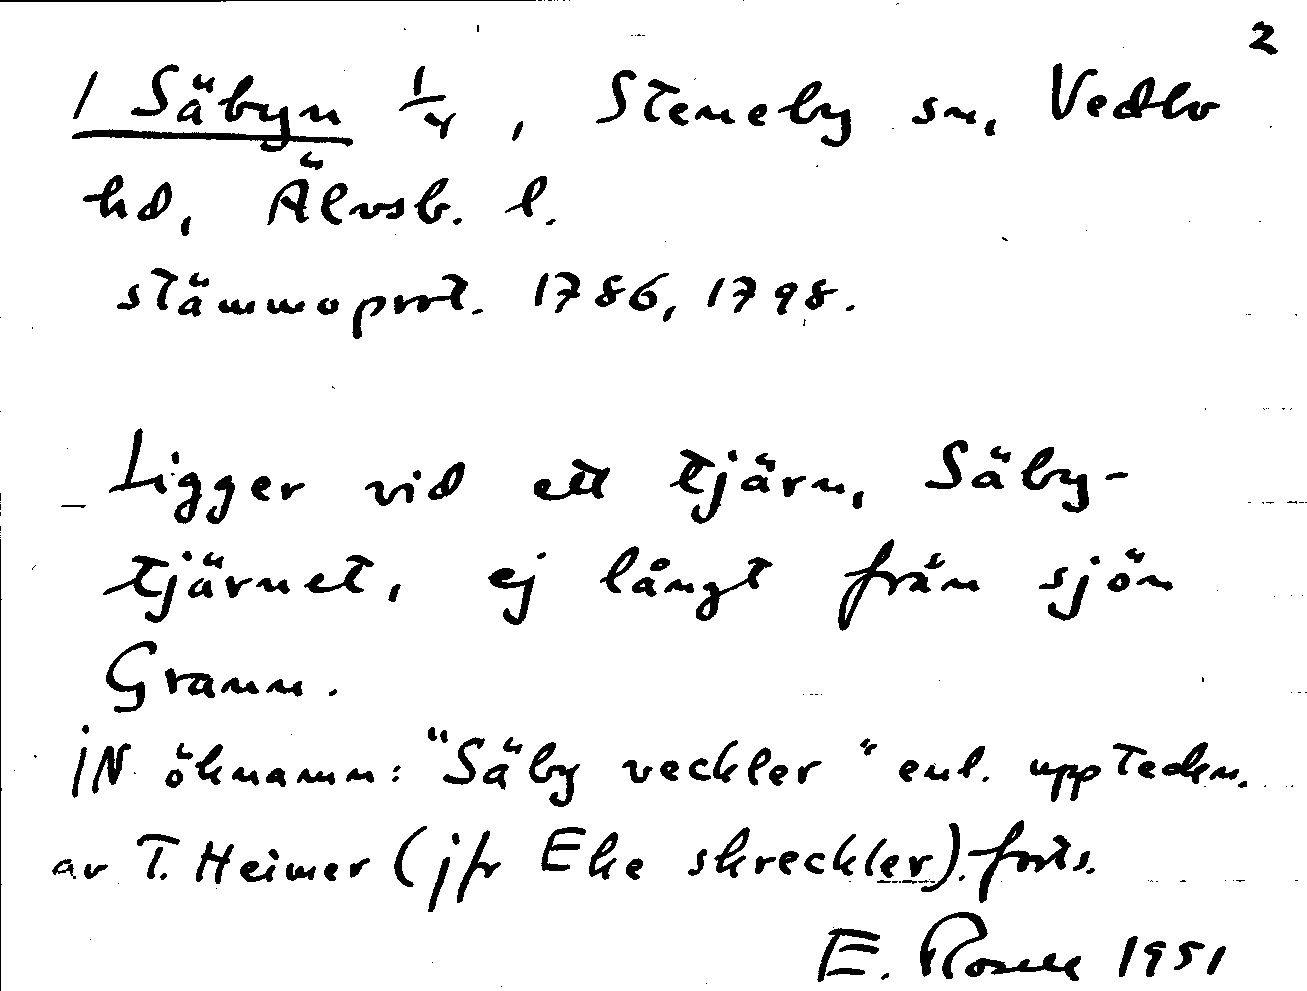 2
/ Säbyn 1/4, Steneby sn, Vedbo
hd, Älvsb. l.
stämmoprot. 1786, 1798.
Ligger vid ett tjärn, Säby-
tjärnet, ej långt från sjön
Grann.
IN öknamn: "Säby veckler" enl. uppteckn.
av T. Heimer (jfr Eke skreckler). forts.
E. Rosell 1951